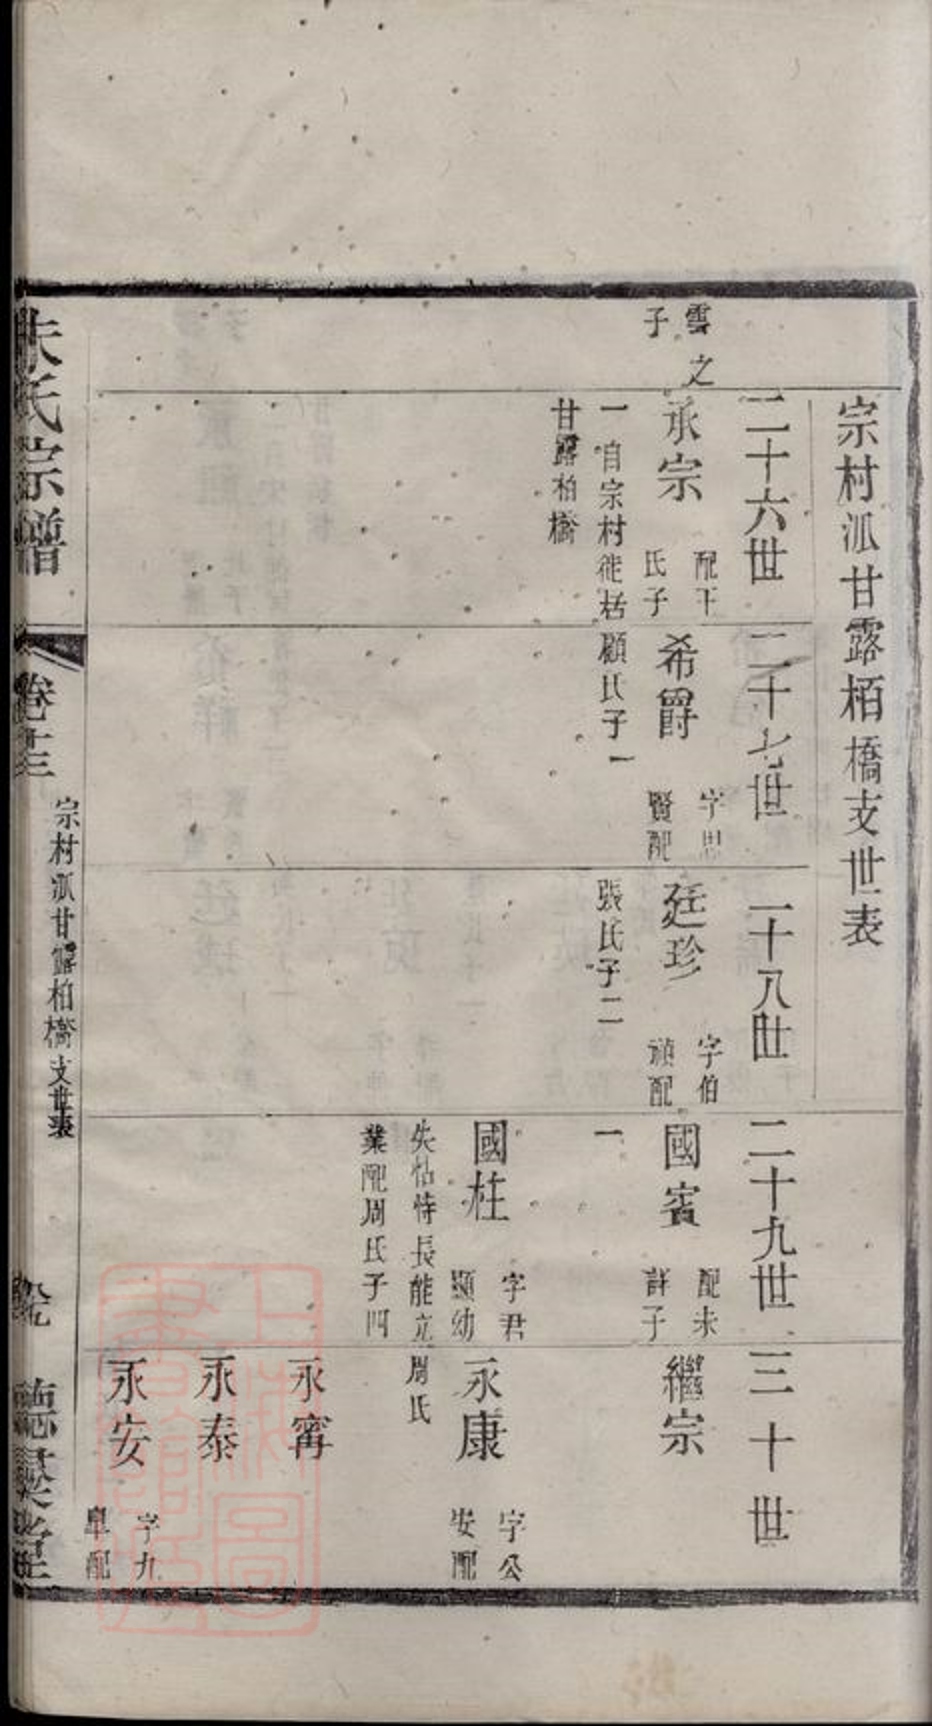 宗村派甘露栢橋支世表
二十六世
二十七世
二十八世
二十九世
三十世
雲之
子
承宗
配王
氏子
一自宗村徙居
甘露柏橋
希爵
字思
賢配
顧氏子一
廷珍
字伯
禎配
張氏子二
國賓
配未
詳子
一
國柱
字君
顯幼
失怙恃長能立
業配周氏子四
繼宗
永康
字公
安配
周氏
永甯
永泰
永安
字九
卑配
氏宗譜
卷十三
宗村派甘露柏橋支世表
上海圖書館藏